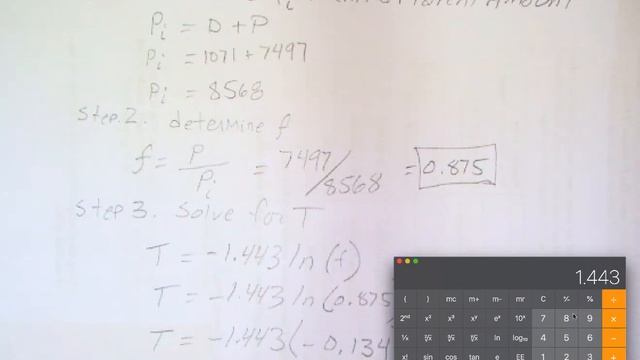 Pi = D + P
Pi = 1071 + 7497
Pi = 8568
Step 2. determine f
f = P/Pi = 7497/8568 = 0.875
Step 3. Solve for T
T = -1.443 ln (f)
T = -1.443 ln (0.875
T = -1.443 (-0.134
1.443
( ) mc m+ m- mr C ⁺∕₋ % ÷
2nd x² x³ xʸ eˣ 10ˣ 7 8 9 ×
¹∕ₓ ²√x ³√x ʸ√x ln log₁₀ 4 5 6 −
x! sin cos tan e EE 2 3 +